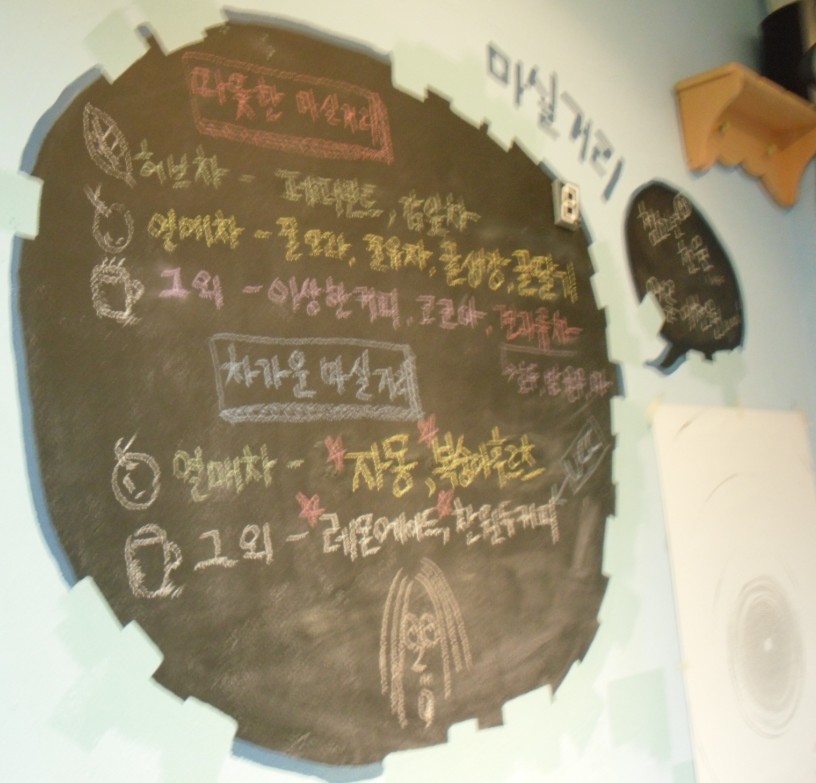 마실거리
따뜻한 마실거리
허브차 - 페퍼민트, 감잎차
열매차 - 꿀모과, 꿀유자, 꿀생강, 꿀딸기
그외 - 이상한커피, 코코아, 견과류차
차가운 마실거리
열매차 - 자몽, 복숭아후르츠
그외 - 레몬에이드, 찬원두커피